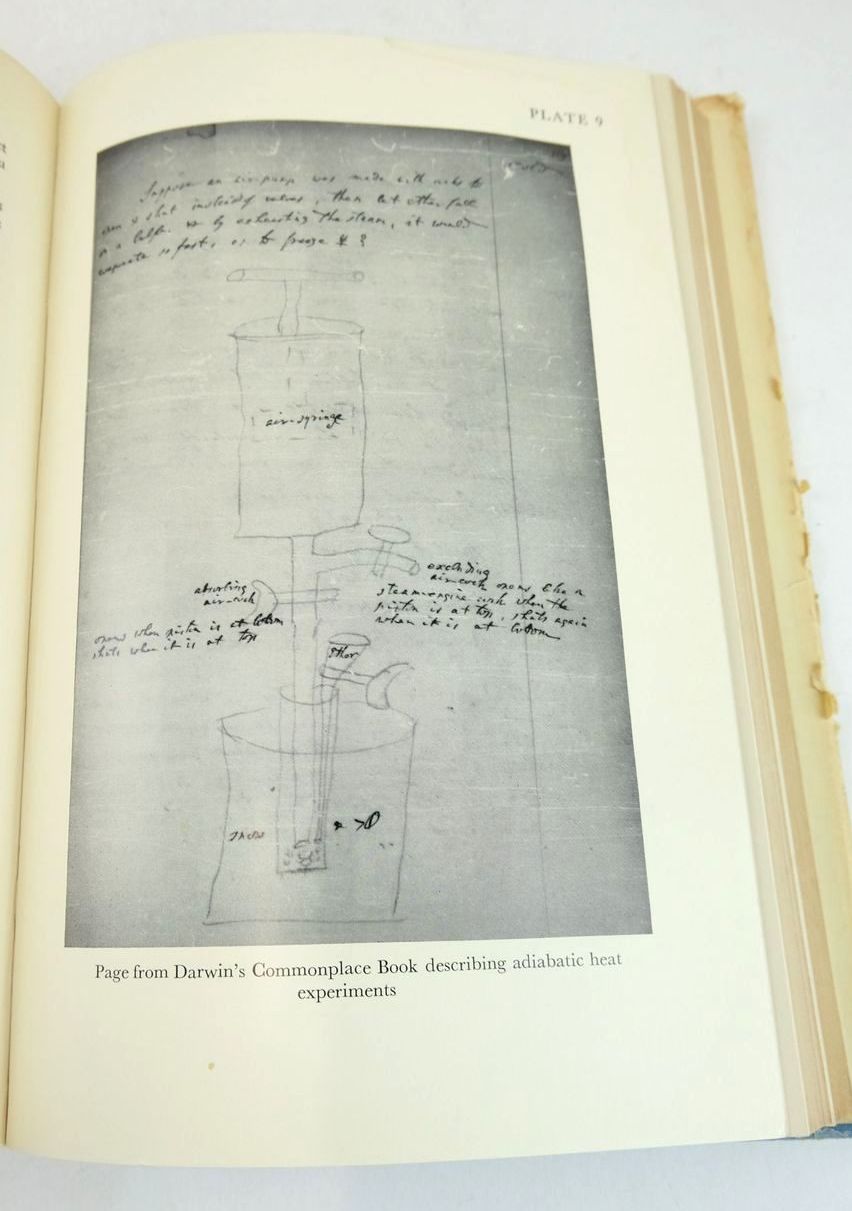 PLATE 9
Suppose an air-pump was made with cocks to
open & shut instead of valves, then let ether fall
in a by exhausting the steam, it would
evaporate so fast, as to freeze ☿ ?
air-syringe
absorbing
air-cock
opens when piston is at bottom
shuts when it is at top
excluding
air-cock opens like a
steam-engine cock when the
piston is at top, shuts again
when it is at bottom
Ether
snow
Page from Darwin's Commonplace Book describing adiabatic heat
experiments